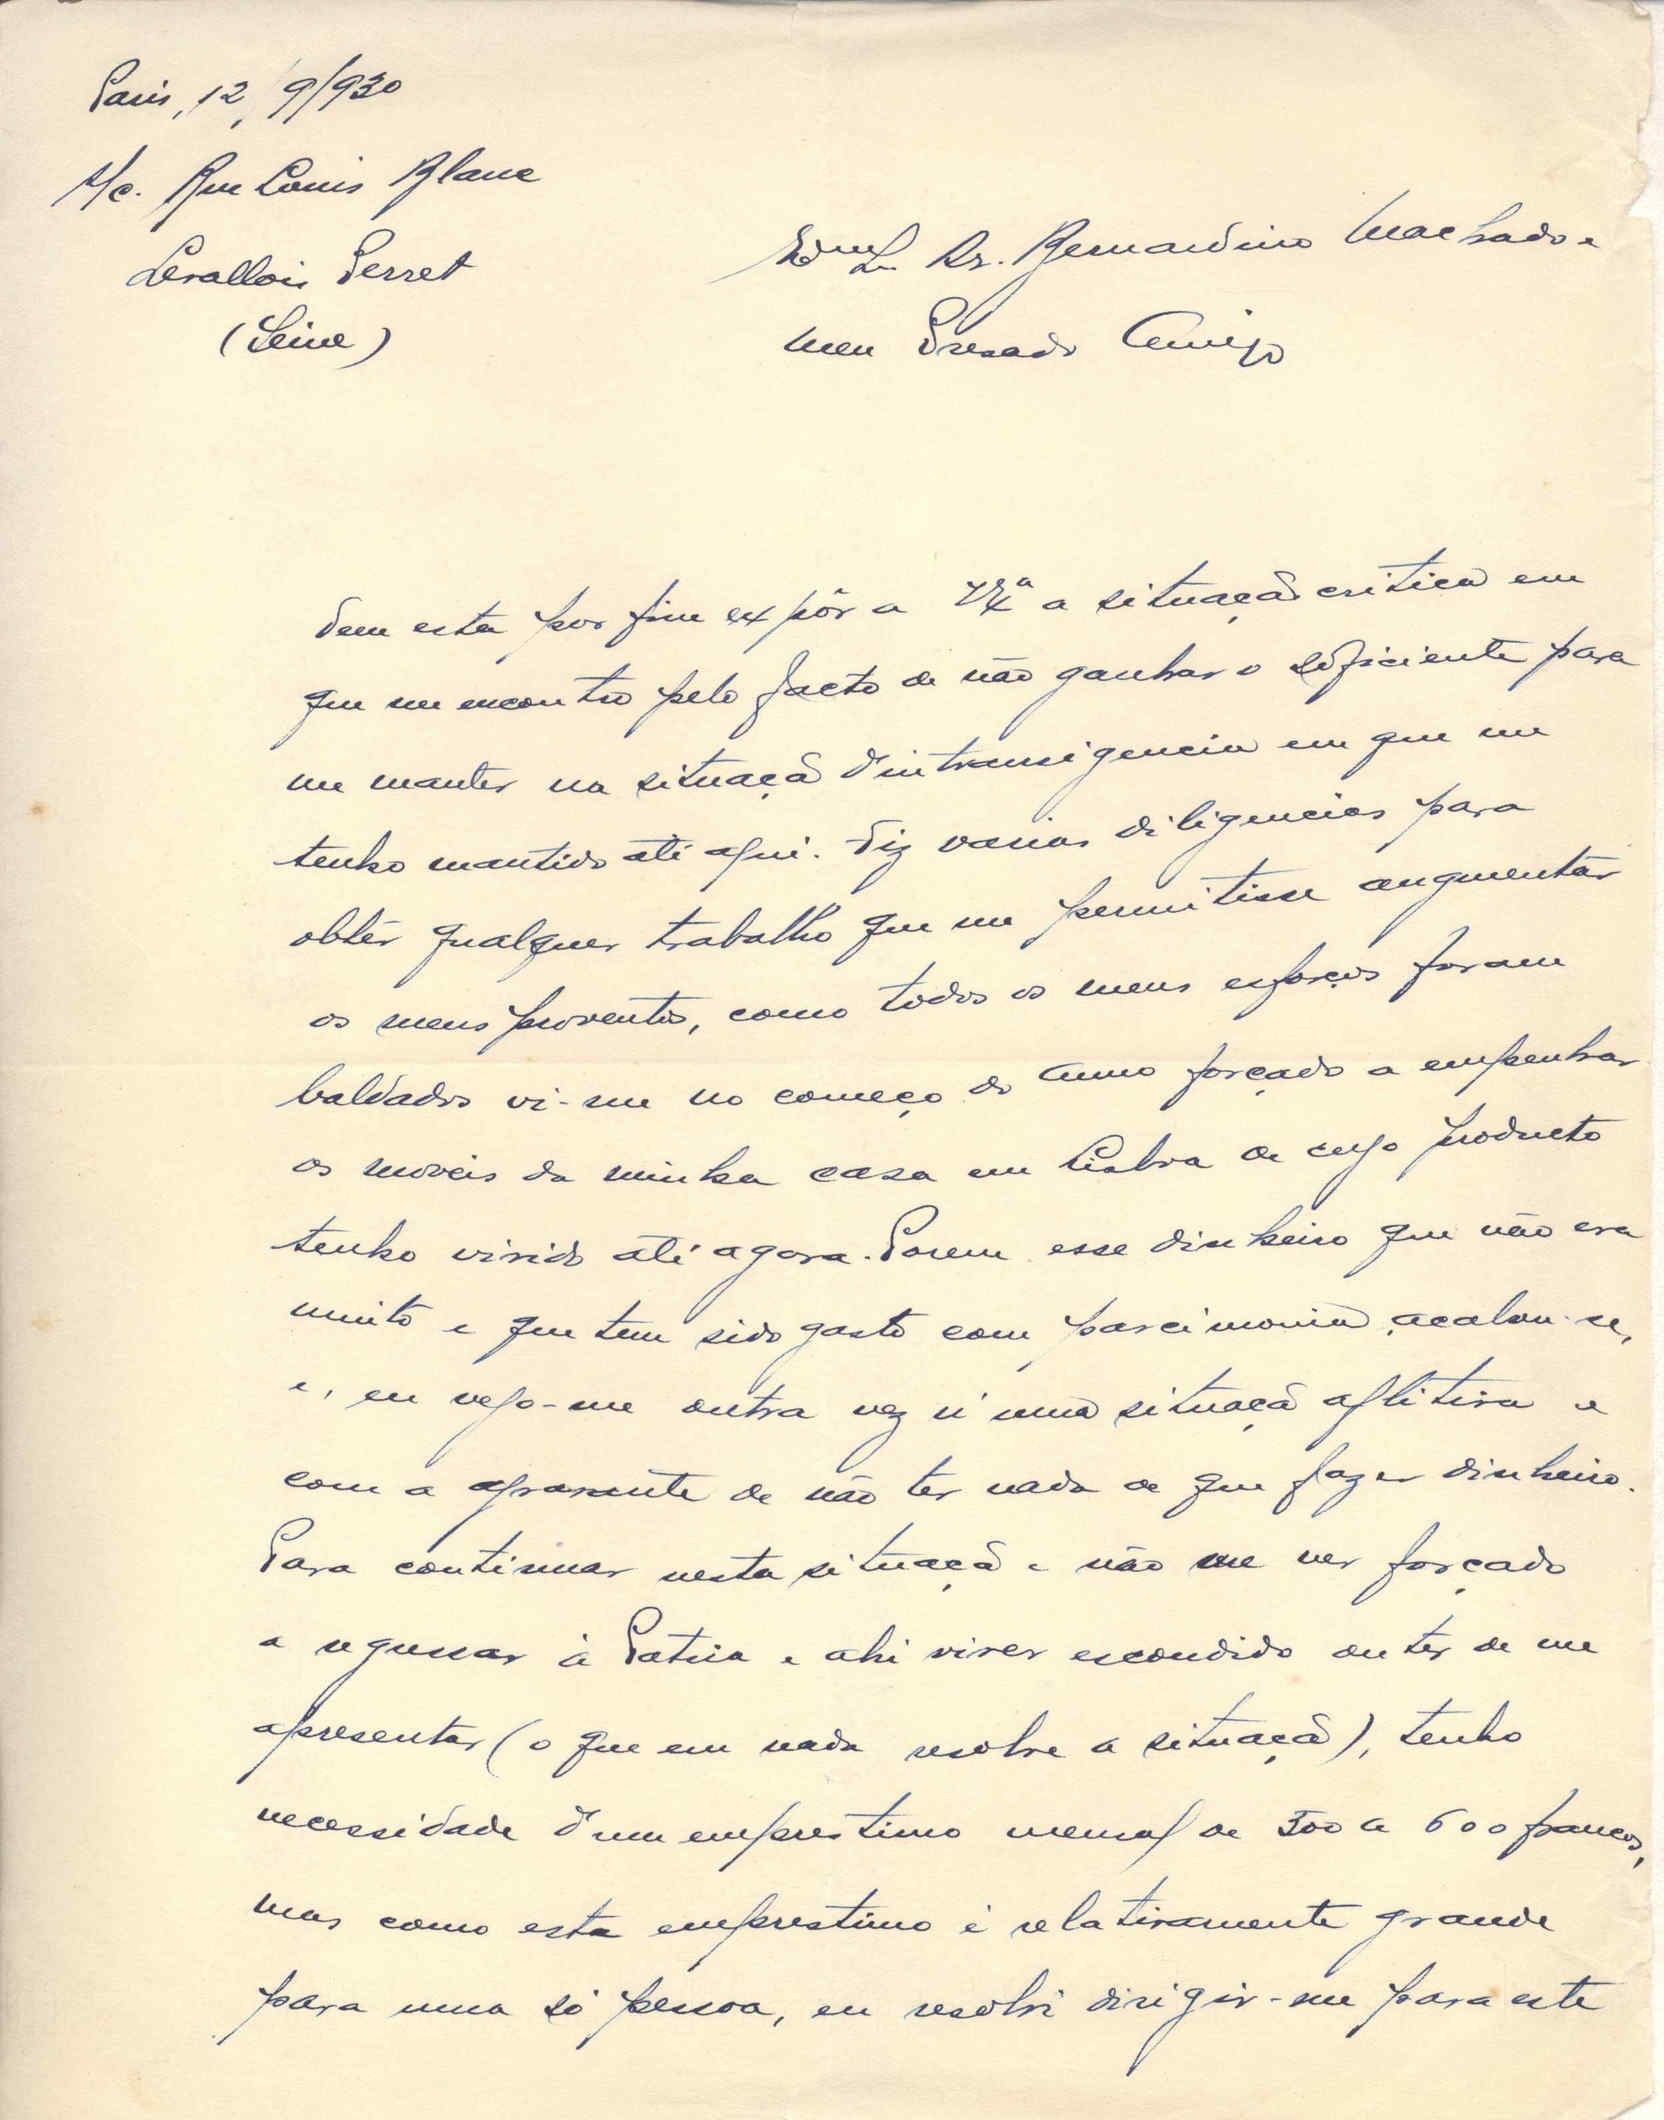 Paris, 12/9/930
s/c. Rue Louis Blanc
Levallois Perret
(Seine)
Exmo Sr. Dr. Bernardino Machado e
meu Presado Amigo
Tem esta por fim expôr a V Exª a situaçã critica em
que me encontro pelo facto de não ganhar o soficiente para
me manter na situaçã d'intransigencia em que me
tenho mantido até aqui. Fiz varias diligencias para
obtêr qualquer trabalho que me permitisse augmentar
os meus proventos, como todos os meus esforços foram
baldados vi-me no começo do anno forçado a empenhar
os moveis da minha casa em Lisboa de cujo producto
tenho vivido até agora. Porem esse dinheiro que não era
muito e que tem sido gasto com parcimonia acabou-se,
e, eu vejo-me outra vez n'uma situaçã aflitiva e
com a agravante de não ter nada de que fazer dinheiro.
Para continuar nesta situaçã e não me ver forçado
a regressar à Patria e ahi viver escondido ou ter de me
apresentar (o que em nada resolve a situaçã), tenho
necessidade d'um emprestimo mensal de 500 a 600 francos,
mas como este emprestimo é relativamente grande
para uma só pessoa, eu resolvi dirigir-me para este